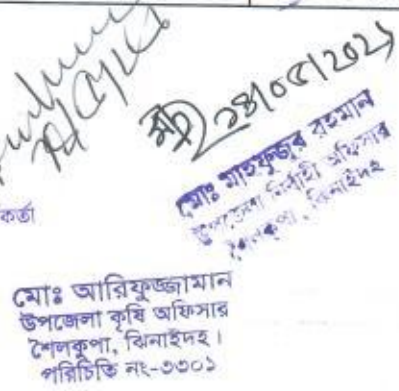 ২৪|০৫|২০২১
কর্তা
মোঃ মাহফুজুর রহমান
উপজেলা নির্বাহী অফিসার
শৈলকুপা, ঝিনাইদহ
মোঃ আরিফুজ্জামান
উপজেলা কৃষি অফিসার
শৈলকুপা, ঝিনাইদহ।
পরিচিতি নং-৩৩০১